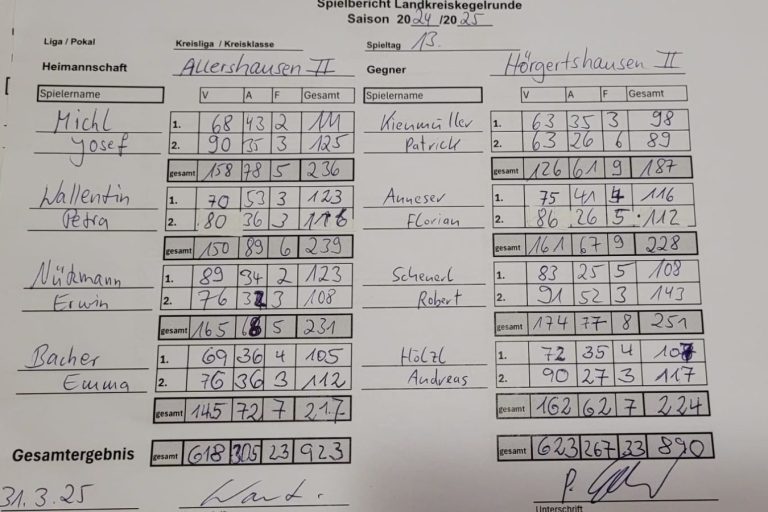 Spielbericht Landkreiskegelrunde
Saison 2024/2025
Liga / Pokal Kreisliga / Kreisklasse Spieltag 13.
Heimannschaft Allershausen II Gegner Hörgertshausen II
Spielername V A F Gesamt Spielername V A F Gesamt
Michl 1. 68 43 2 111 Kienmüller 1. 63 35 3 98
Josef 2. 90 35 3 125 Patrick 2. 63 26 6 89
gesamt 158 78 5 236 gesamt 126 61 9 187
Wallentin 1. 70 53 3 123 Anneser 1. 75 41 4 116
Petra 2. 80 36 3 116 Florian 2. 86 26 5 112
gesamt 150 89 6 239 gesamt 161 67 9 228
Nützmann 1. 89 34 2 123 Scheuerl 1. 83 25 5 108
Erwin 2. 76 32 3 108 Robert 2. 91 52 3 143
gesamt 165 66 5 231 gesamt 174 77 8 251
Bacher 1. 69 36 4 105 Hölzl 1. 72 35 4 107
Emma 2. 76 36 3 112 Andreas 2. 90 27 3 117
gesamt 145 72 7 217 gesamt 162 62 7 224
Gesamtergebnis gesamt 618 305 23 923 gesamt 623 267 33 890
31.3.25
Unterschrift